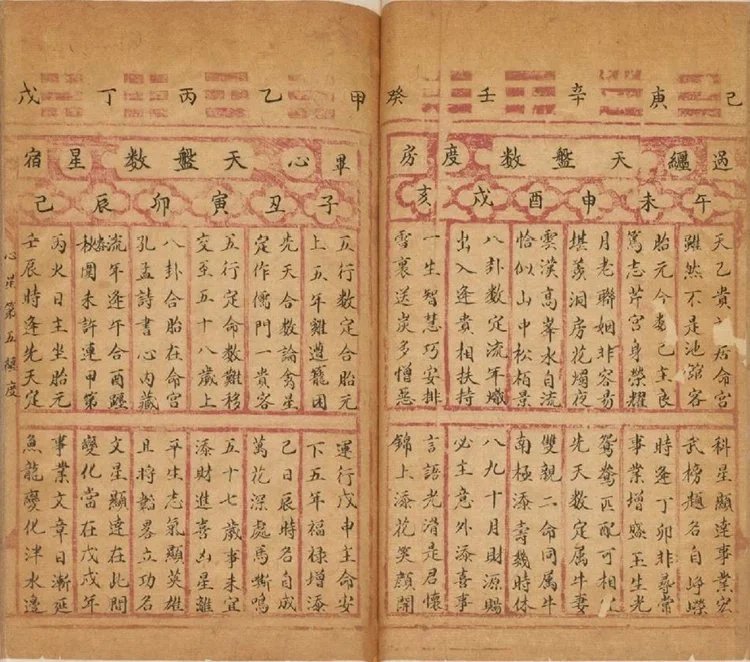 己 庚 辛 壬 癸
過 纏 天盤數 度 房
午 未 申 酉 戌 亥
天乙貴 居命宮
雖然不是池 客
胎元今 己主良
篤志芹宮身榮耀
月老聯姻非容易
堪羨洞房花燭夜
雲漢高峯水自流
恰似山中松栢景
八卦數定流年熾
出入逢貴相扶持
一生智慧巧安排
雪裏送炭多憎惹
科星顯達事業宏
武榜題名自崢嶸
時逢丁卯非尋常
事業增盛玉生光
鴛鴦匹配可相
先天數定属牛妻
雙親二命同属牛
南極添壽幾時休
八九十月財源賜
必主意外添喜事
言語光滑是君懷
錦上添花笑顏開
甲 乙 丙 丁 戊
畢 心 天盤數 星 宿
子 丑 寅 卯 辰 巳
五行數定合胎元
上五年難遭籠困
先天合數論禽星
定作儒門一貴客
五行定命數難移
交至五十八歲上
八卦合胎在命宮
孔孟詩書心內藏
流年逢午合酉躔
秋闈未許連甲第
丙火日主坐胎元
壬辰時逢先天定
運行戊申主命安
下五年福祿增添
己日辰時名自成
萬花深處馬嘶鳴
五十七歲事未宜
添財進喜凶星離
平生志氣顯英雄
且將韜畧立功名
文星顯達在此間
變化當在戊戌年
事業文章日漸延
魚龍變化津水邊
心星第五 度